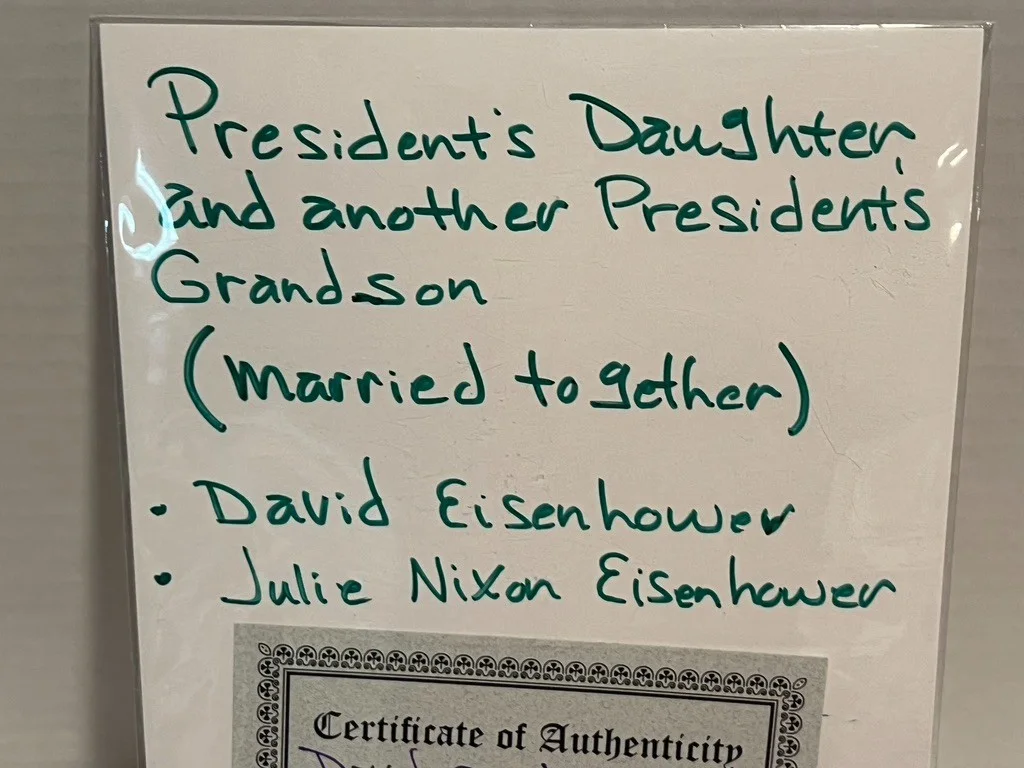 President's Daughter,
and another President's
Grandson
(married together)
• David Eisenhower
• Julie Nixon Eisenhower
Certificate of Authenticity
David